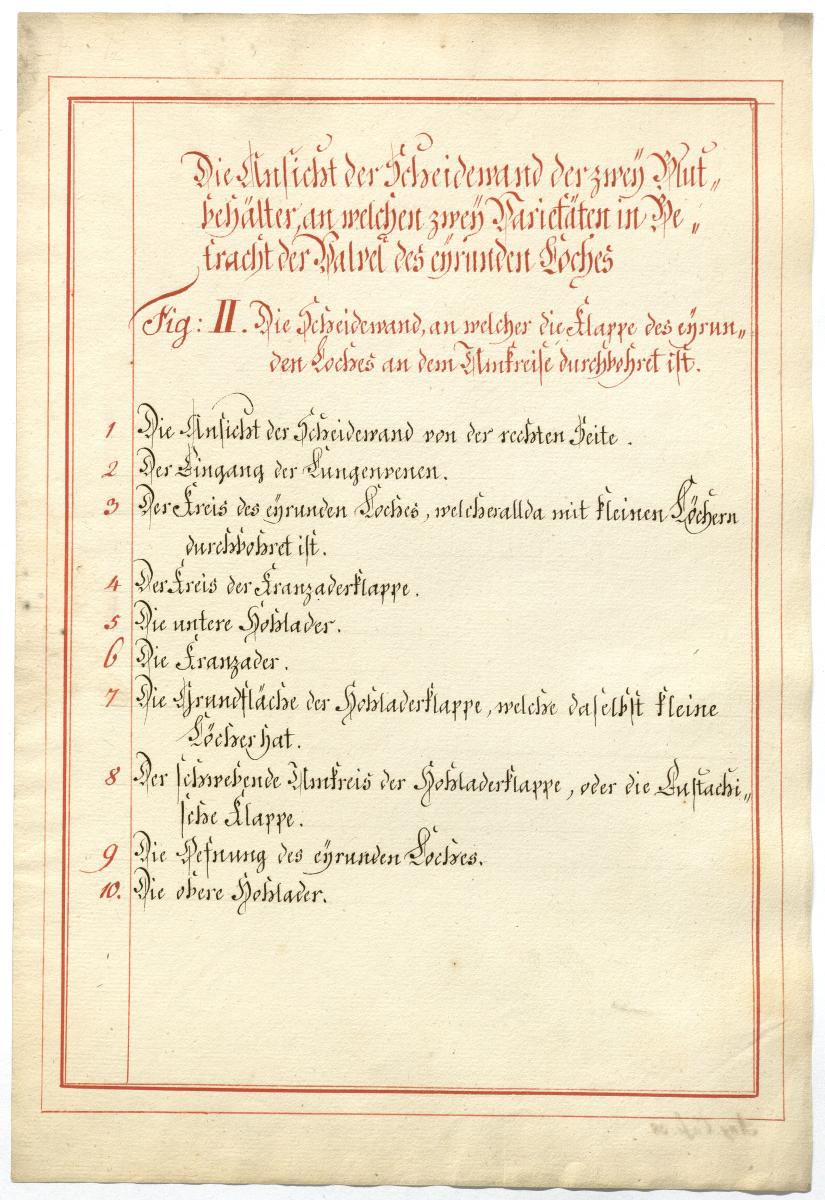 Die Ansicht der Scheidewand der zwey Blut„
behälter, an welchen zwey Varietäten in Be„
tracht der Valvel des eyrunden Loches
Fig: II. Die Scheidewand, an welcher die Klappe des eyrun„
den Loches an dem Umkreise durchbohret ist.
1 Die Ansicht der Scheidewand von der rechten Seite.
2 Der Eingang der Lungenvenen.
3 Der Kreis des eyrunden Loches, welcher allda mit kleinen Löchern
durchbohret ist.
4 Der Kreis der Kranzaderklappe.
5 Die untere Hohlader.
6 Die Kranzader.
7 Die Grundfläche der Hohladerklappe, welche daselbst kleine
Löcher hat.
8 Der schwebende Umkreis der Hohladerklappe, oder die Eustachi„
sche Klappe.
9 Die Oefnung des eyrunden Loches.
10. Die obere Hohlader.